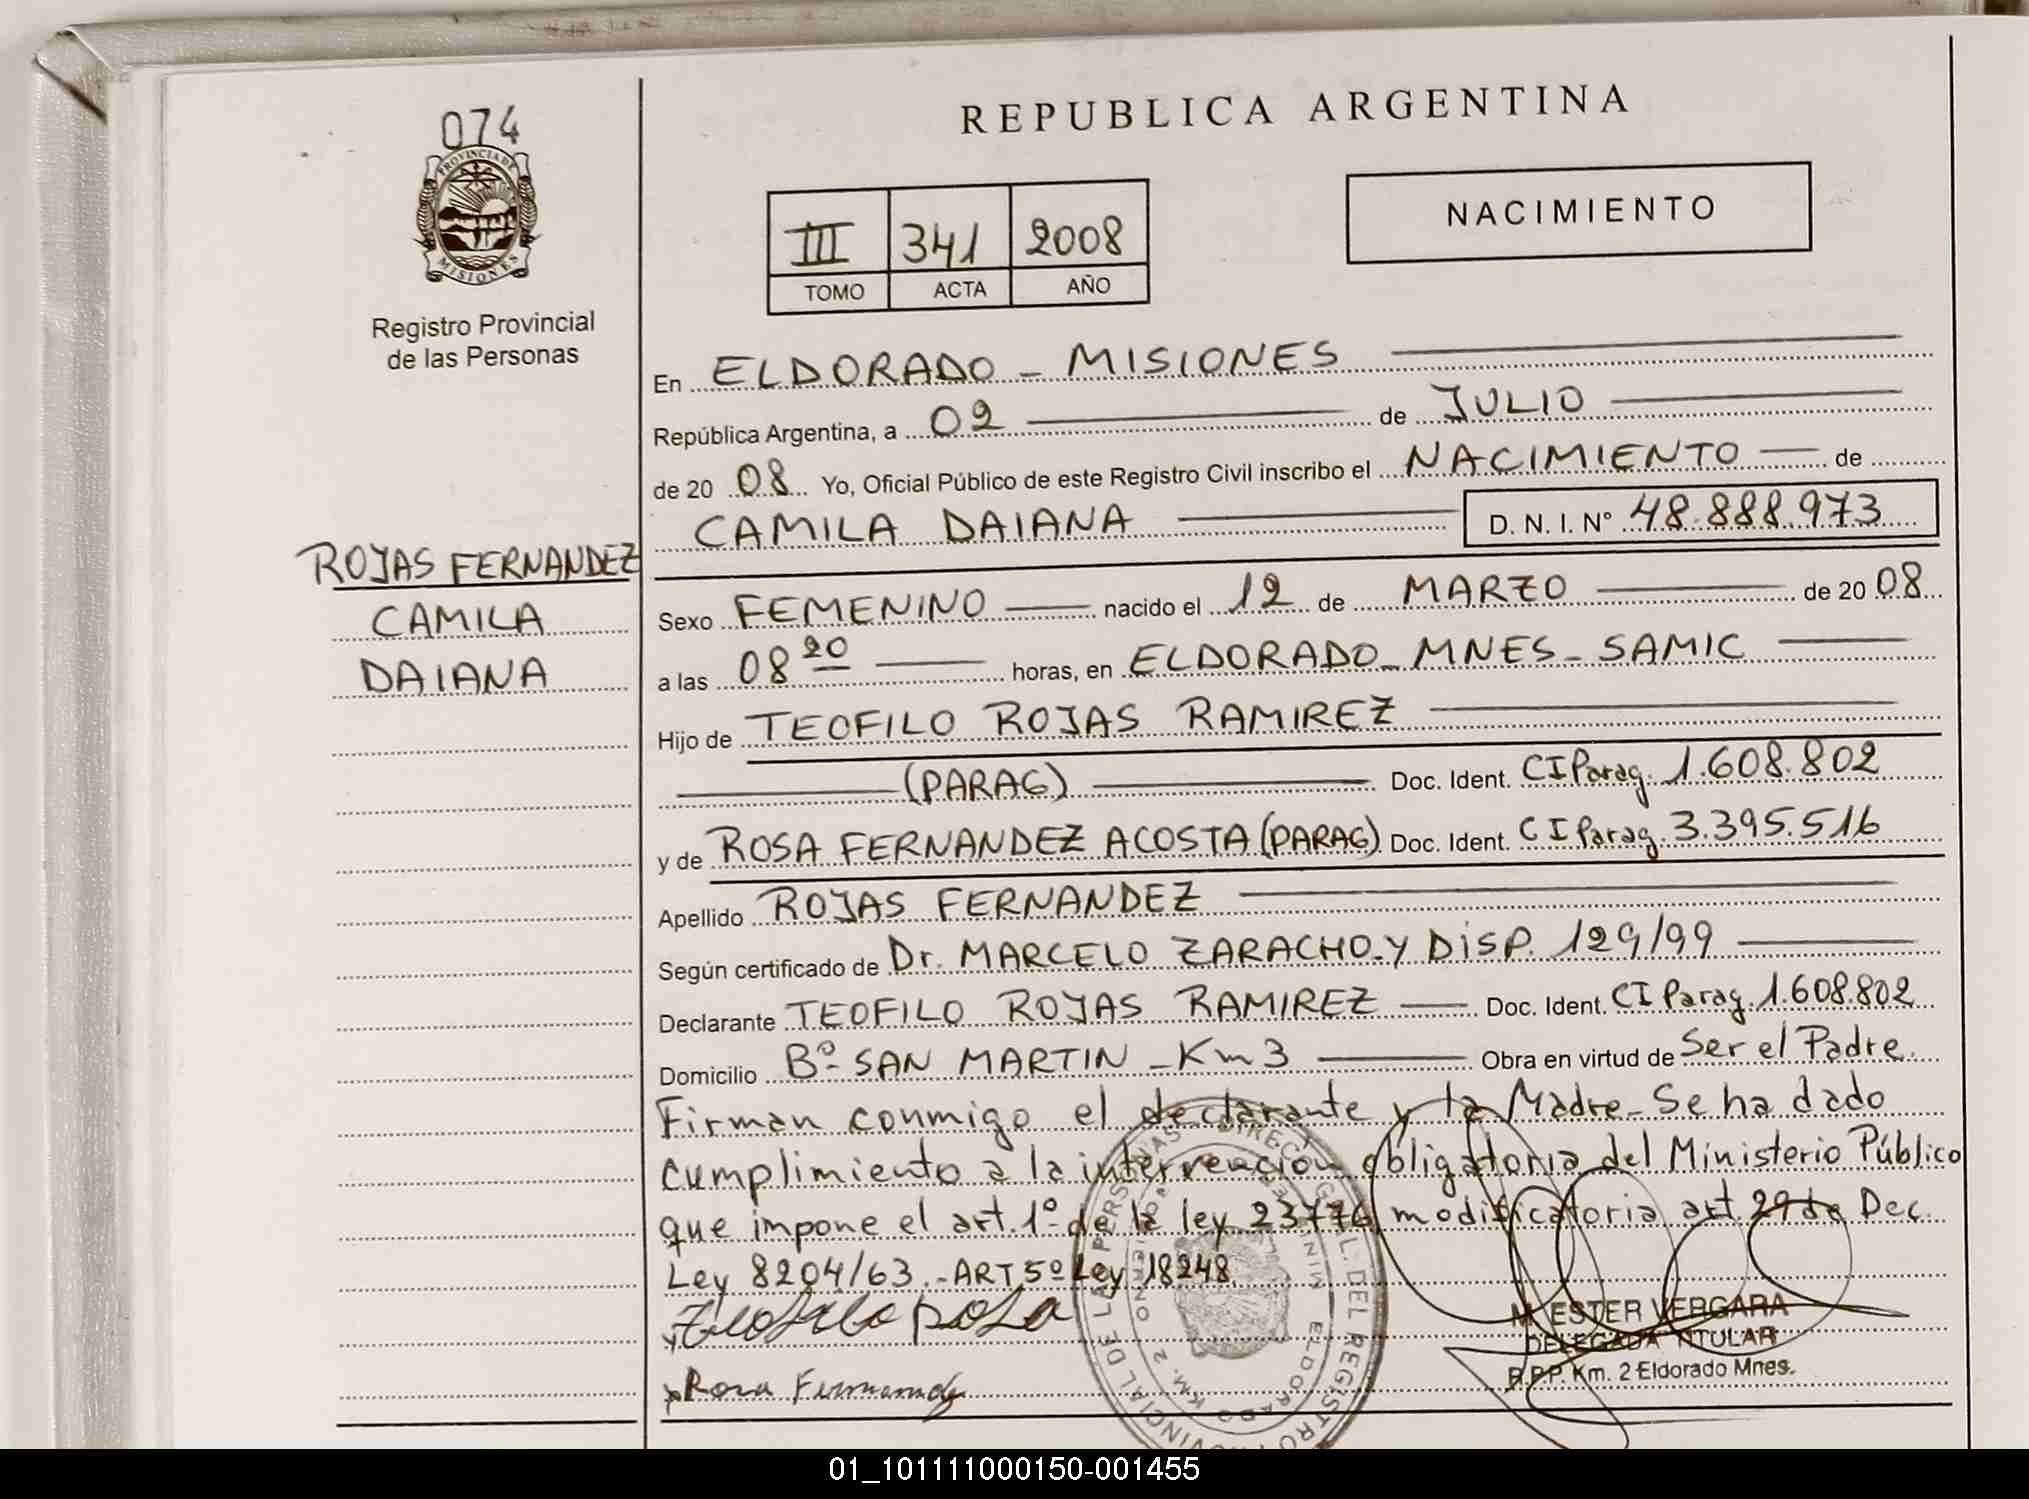 074
PROVINCIA DE
MISIONES
Registro Provincial
de las Personas
ROJAS FERNANDEZ
CAMILA
DAIANA
REPUBLICA ARGENTINA
III 341 2008
TOMO ACTA AÑO
NACIMIENTO
En ELDORADO - MISIONES
República Argentina, a 02 de JULIO
de 20 08 Yo, Oficial Público de este Registro Civil inscribo el NACIMIENTO de
CAMILA DAIANA D. N. I. N° 48.888.973
Sexo FEMENINO nacido el 12 de MARZO de 20 08
a las 08 20 horas, en ELDORADO - MNES - SAMIC
Hijo de TEOFILO ROJAS RAMIREZ
(PARAG) Doc. Ident. CI Parag. 1.608.802
y de ROSA FERNANDEZ ACOSTA (PARAG) Doc. Ident. CI Parag. 3.395.516
Apellido ROJAS FERNANDEZ
Según certificado de Dr. MARCELO ZARACHO - Y DISP. 129/99
Declarante TEOFILO ROJAS RAMIREZ Doc. Ident. CI Parag. 1.608.802
Domicilio Bº SAN MARTIN - Km 3 Obra en virtud de Ser el Padre.
Firman conmigo el declarante y la Madre - Se ha dado
cumplimiento a la intervención obligatoria del Ministerio Público
que impone el art. 1º de la ley 23776 modificatoria art. 29 de Dec.
Ley 8204/63 - ART 5º Ley 18248
Rosa Fernandez
M. ESTER VERGARA
DELEGADA TITULAR
R.P.P. Km. 2 Eldorado Mnes.
01_101111000150-001455